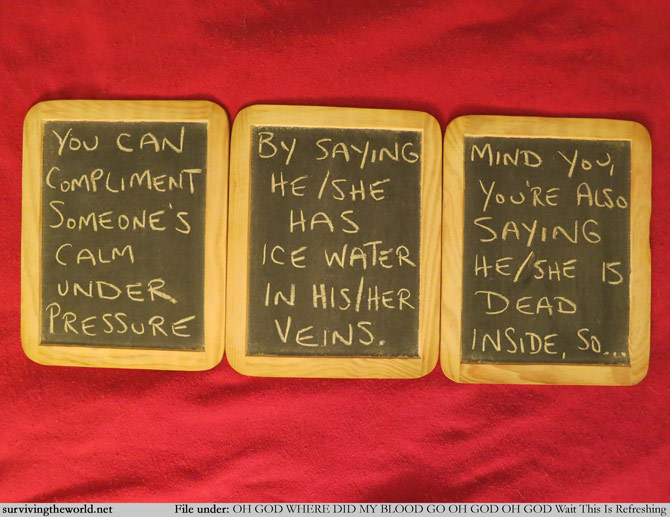 YOU CAN
COMPLIMENT
SOMEONE'S
CALM
UNDER
PRESSURE
BY SAYING
HE/SHE
HAS
ICE WATER
IN HIS/HER
VEINS.
MIND YOU,
YOU'RE ALSO
SAYING
HE/SHE IS
DEAD
INSIDE, SO...
survivingtheworld.net
File under: OH GOD WHERE DID MY BLOOD GO OH GOD OH GOD Wait This Is Refreshing